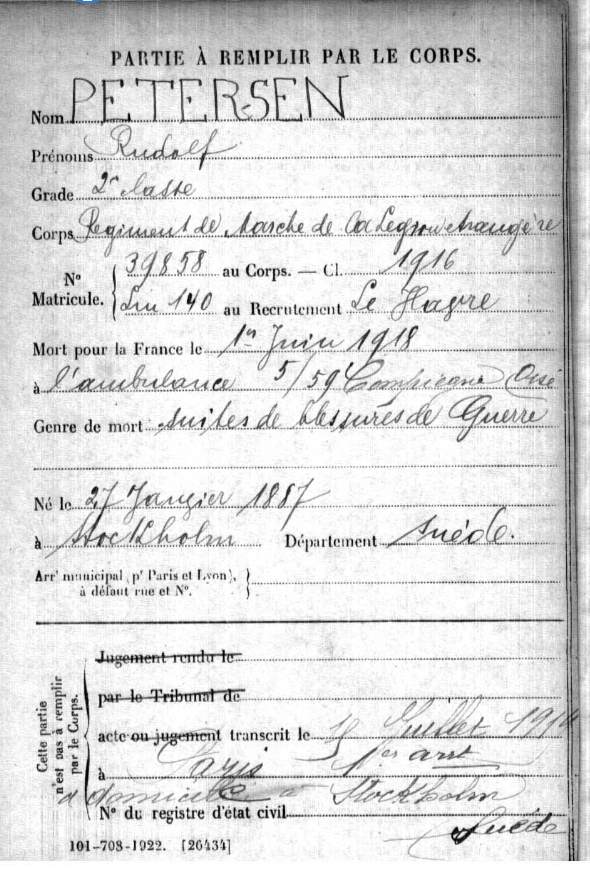 PARTIE À REMPLIR PAR LE CORPS.
Nom PETERSEN
Prénoms Rudolf
Grade 2e classe
Corps Régiment de Marche de la Légion étrangère
N° Matricule. 39858 au Corps. — Cl. 1916
140 au Recrutement Le Havre
Mort pour la France le 1er Juin 1918
à l'ambulance 5/59 Compiègne Oise
Genre de mort suites de blessures de Guerre
Né le 27 Janvier 1887
à Stockholm Département Suède.
Arrt municipal (pr Paris et Lyon),
à défaut rue et N°.
Cette partie
n'est pas à remplir
par le Corps.
Jugement rendu le
par le Tribunal de
acte ou jugement transcrit le Juillet
à Paris 1er arrt
domicile à Stockholm
N° du registre d'état civil
Suède
101-708-1922. [26434]